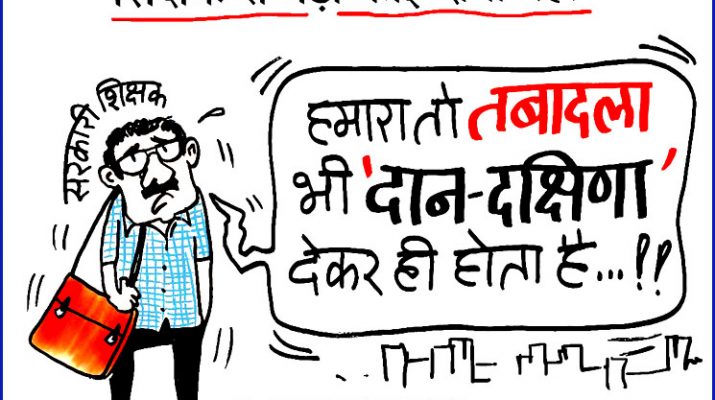 सरकारी शिक्षक
हमारा तो तबादला
भी 'दान-दक्षिणा'
देकर ही होता है...!!